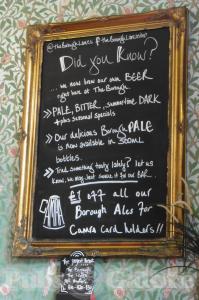 @theBoroughLancs f: theBoroughLancaster
Did you Know?
... we now brew our own BEER
right here at The Borough.
» PALE, BITTER, summertime DARK
+ plus seasonal specials
» Our delicious Borough PALE
is now available in 500ml
bottles.
» Tried something tasty lately? let us
Know, we may just swipe it for our BAR...
£1 off all our
Borough Ales for
Camra Card holders!!
CAMRA